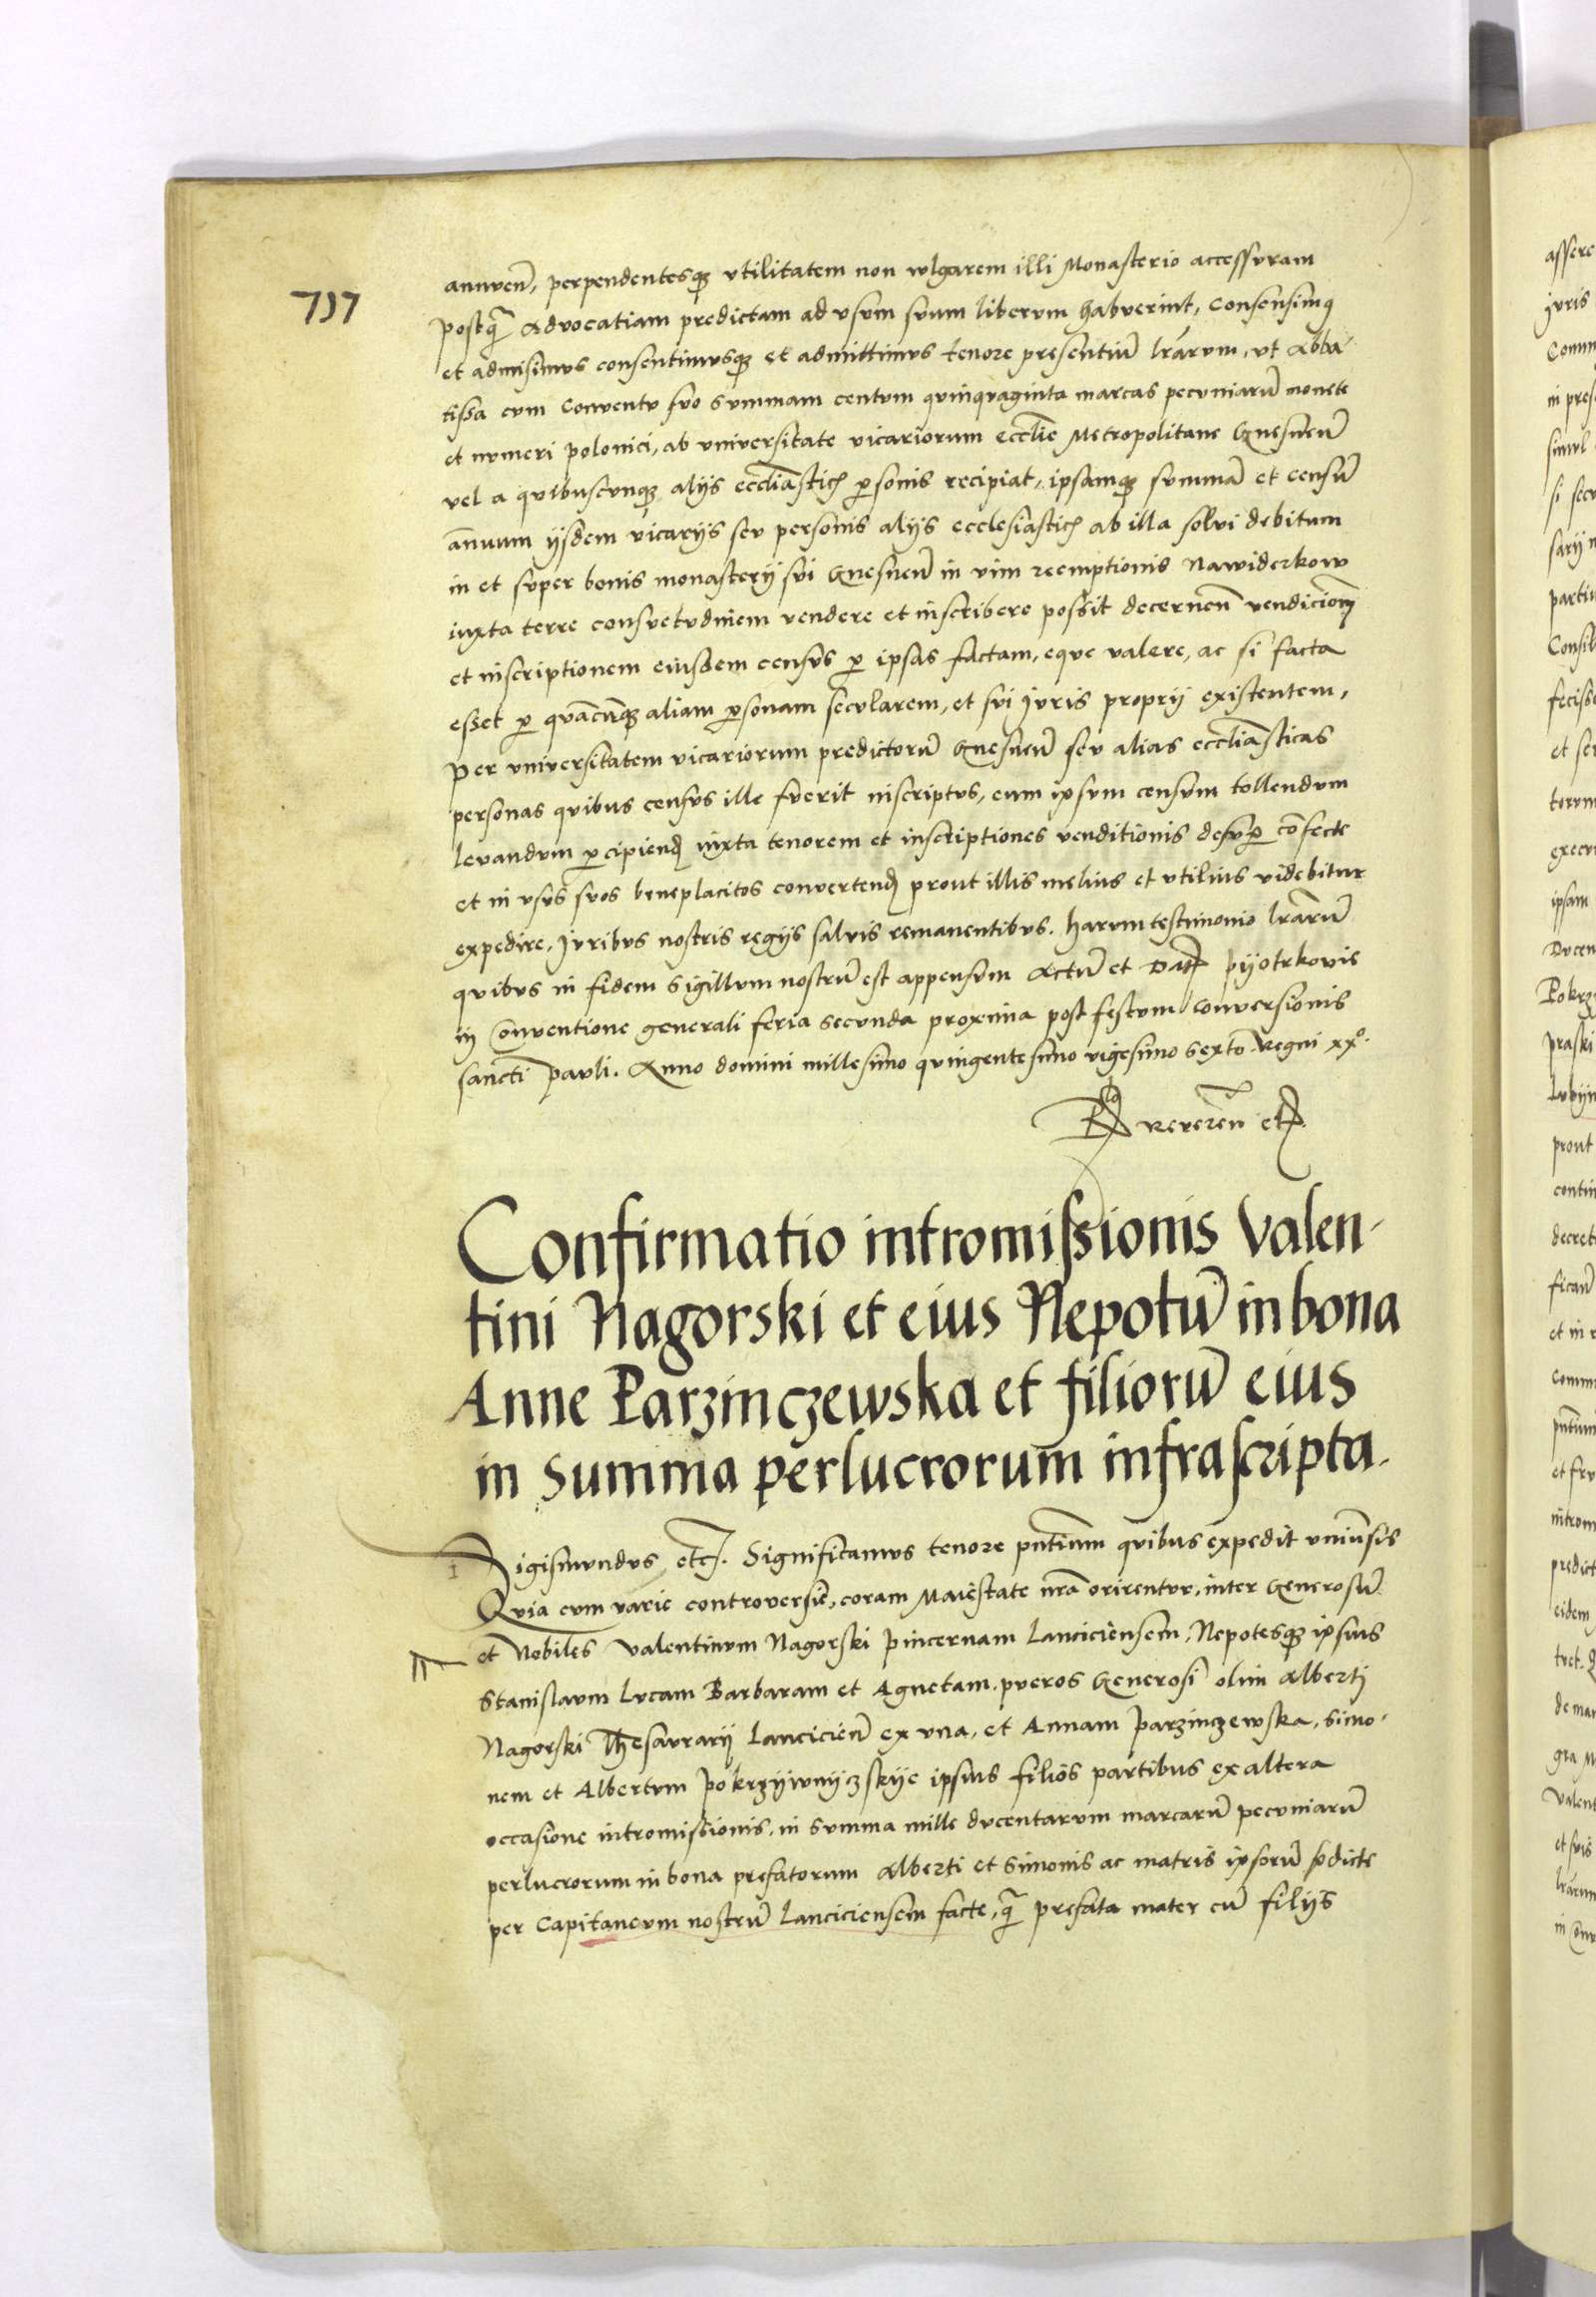 737
annuen̄, perpendentesq3 vtilitatem non vulgarem illi Monasterio accessuram
postq̄ Aduocatiam predictam ad vsum suum liberum habuerint, Consensimus
et admisimus consentimusq3 et admittimus tenore presentiū lrārum, vt Abba-
tissa cum Conuentu suo summam centum quinquaginta marcas pecuniarū monete
et numeri polonici, ab vniuersitate vicariorum ecclīe Metropolitane Gnesneñ
vel a quibuscunq3 alijs ecclīasticis psonis recipiat, ipsamq3 summā et censū
ānuum ijsdem vicarijs seu personis alijs ecclesiasticis ab illa solui debitum
in et super bonis monasterij sui Gnesneñ in vim reemptionis Nawiderkow
iuxta terre consuetudinem vendere et inscribere possit decernen̄ vendicionem
et inscriptionem eiusdem census p ipsas factam, eque valere, ac si facta
esset p quācūq3 aliam psonam secularem, et sui Juris proprij existentem,
Per vniuersitatem vicariorum predictorū Gnesneñ seu alias ecclīasticas
personas quibus census ille fuerit inscriptus, eum ipsum censum tollendum
leuandum pcipiend iuxta tenorem et inscriptiones venditionis desup cōfecte
et in vsus suos beneplacitos conuertend prout illis melius et vtilius videbitur
expedire, Juribus nostris regijs saluis remanentibus. harum testimonio lrārū
quibus in fidem Sigillum nostrū est appensum Actū et Dat Pyotrkouie
in Conuentione generali feria secunda proxima post festum Conuersionis
sancti Pauli. Anno domini millesimo quingentesimo vigesimo sexto. Regni xxo.
Rlo Reueren̄ etc.
Confirmatio intromissionis Valen-
tini Nagorski et eius Nepotū in bona
Anne Parzinczewska et filiorū eius
in Summa perlucrorum infrascripta.
Sigismundus etc. Significamus tenore pntium quibus expedit vniūsis
Quia cum varie controuersie, coram Maiestate nrā orirentur, inter Generosū
et Nobiles Valentinum Nagorski pincernam Lanciciensem, Nepotesq3 ipsius
Stanislaum Lucam Barbaram et Agnetam, pueros Generosi olim Alberti
Nagorski Thesaurarij Lancicieñ ex vna, et Annam Parzinczewska, Simo-
nem et Albertum Pokrzywnyczskije ipsius filios partibus ex altera
occasione intromissionis, in summa mille ducentarum marcarū pecuniarū
perlucrorum in bona prefatorum Alberti et Simonis ac matris ipsorū pdicte
per Capitaneum nostrū Lanciciensem facte, q̄ prefata mater cū filijs